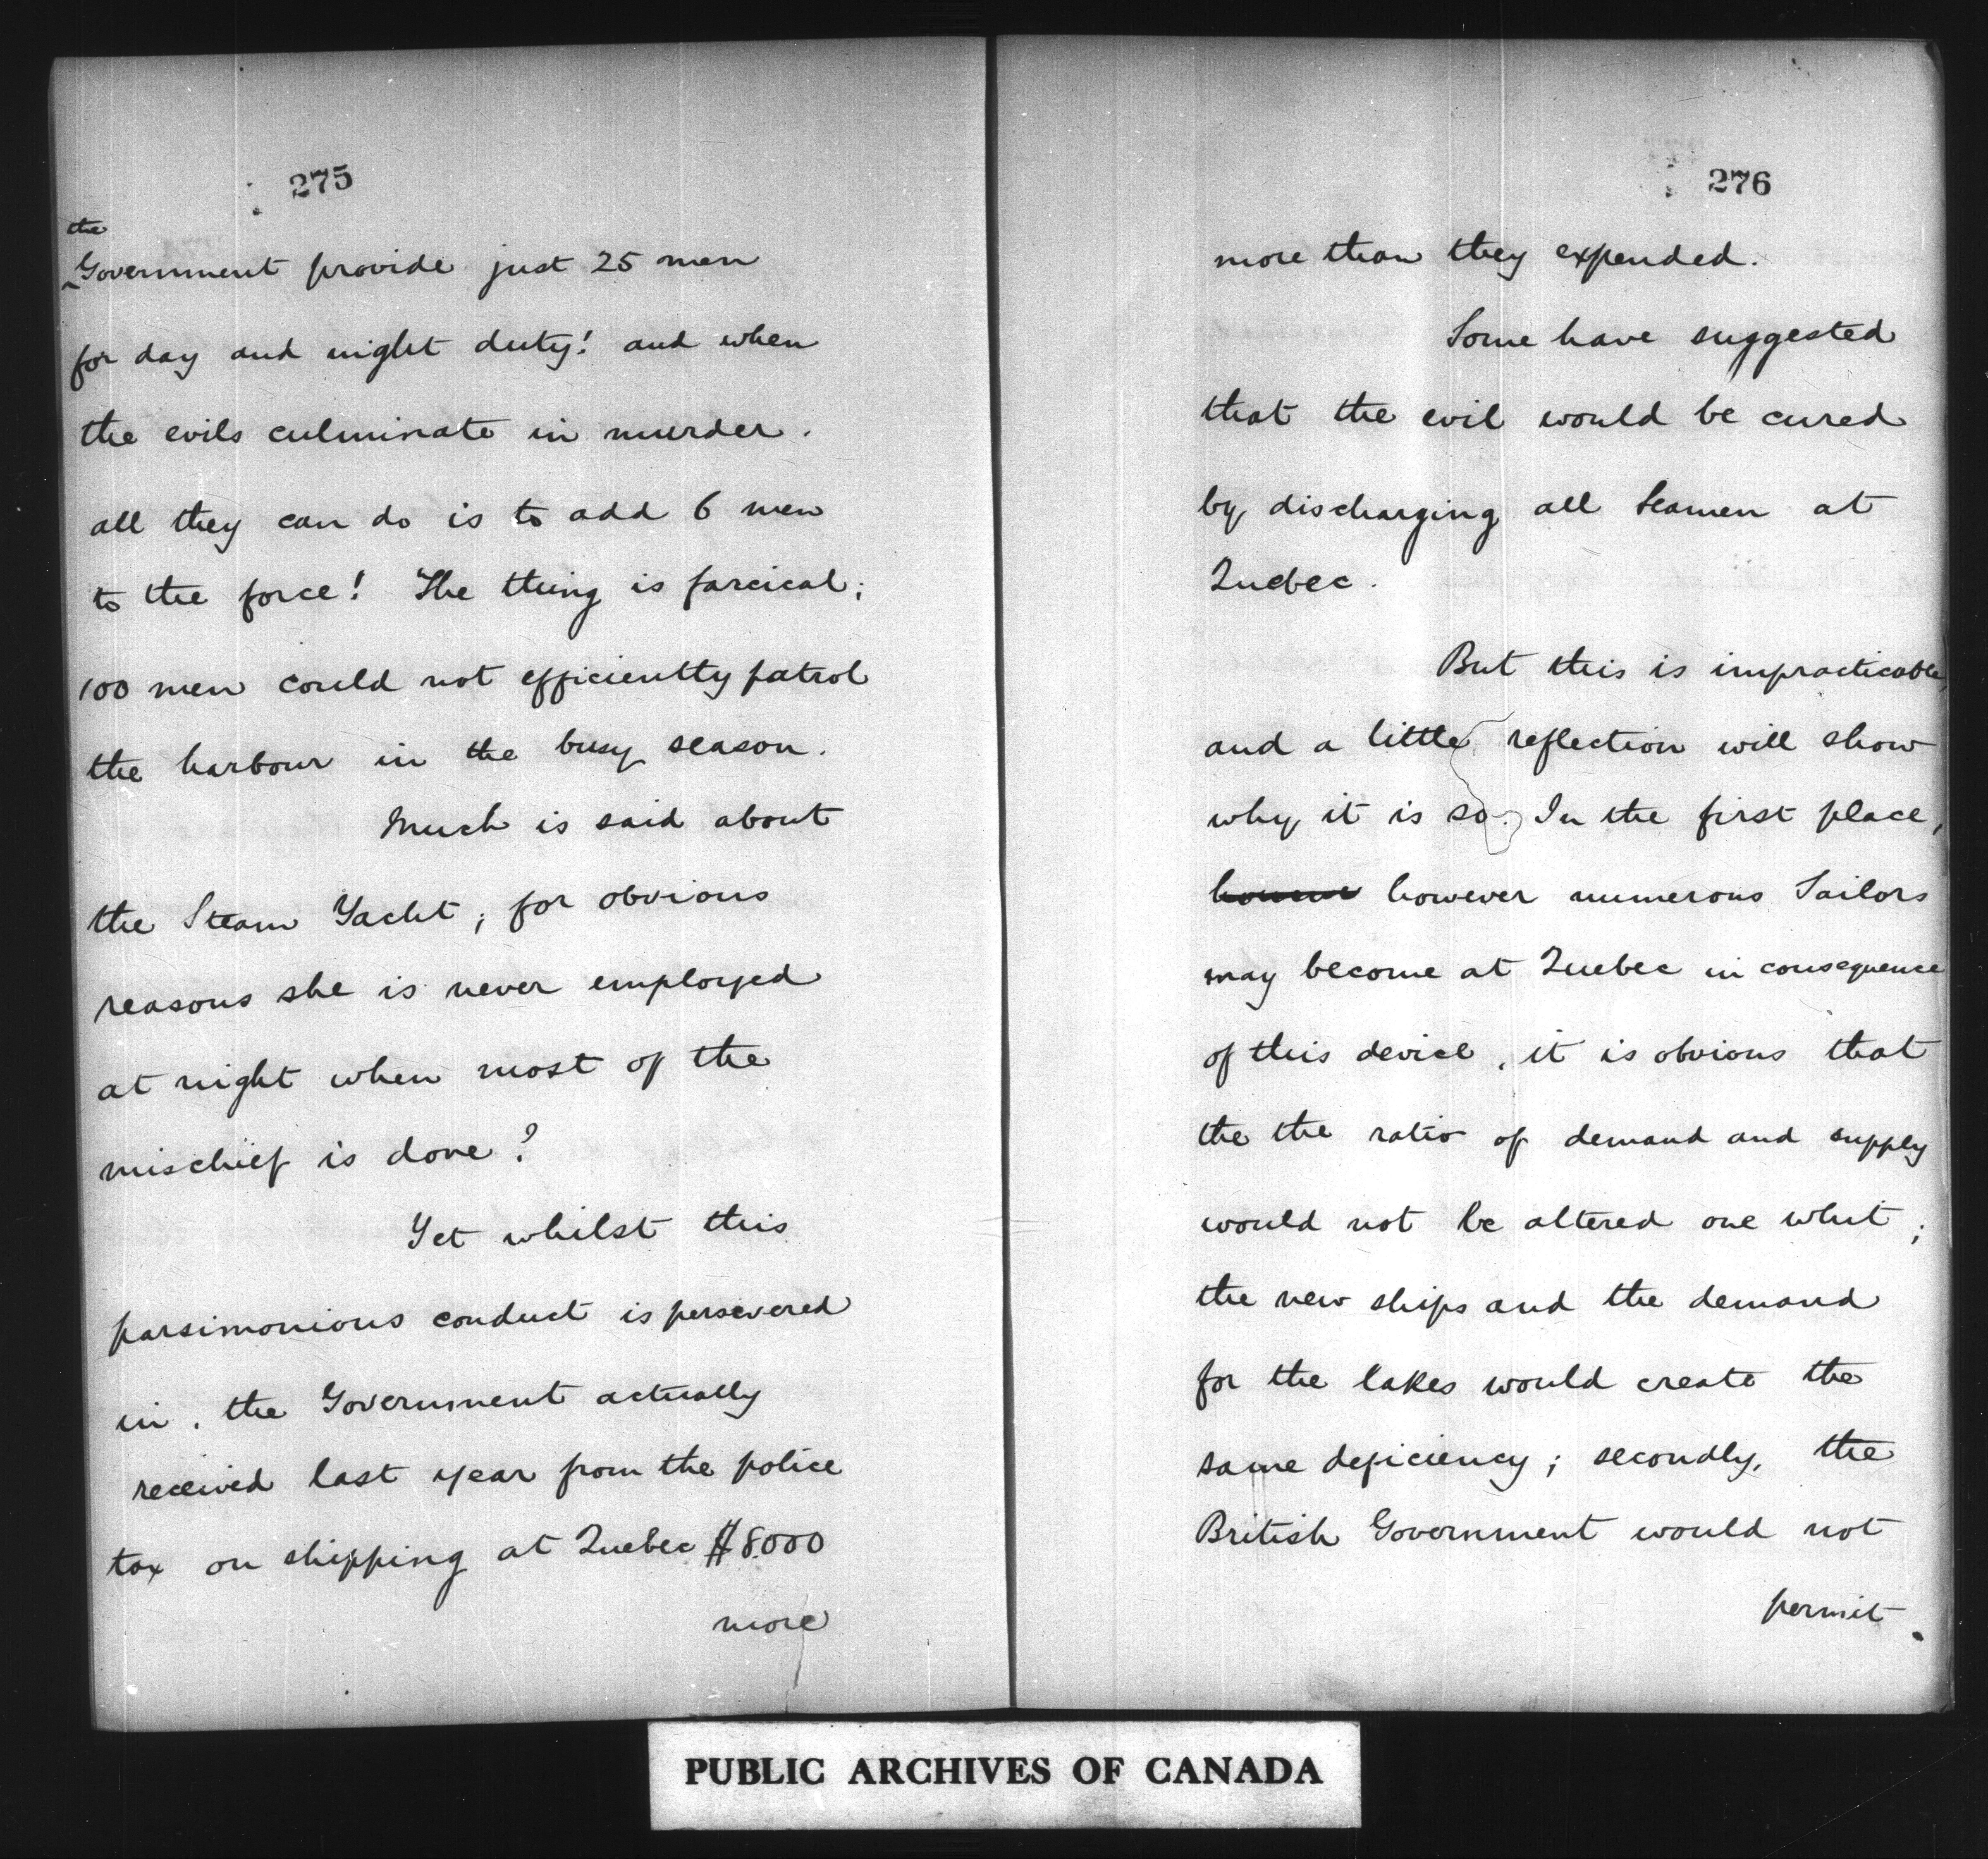 275
the
Government provide just 25 men
for day and night duty! and when
the evils culminate in murder.
all they can do is to add 6 men
to the force! The thing is farcical;
100 men could not efficiently patrol
the harbour in the busy season.
Much is said about
the Steam Yacht; for obvious
reasons she is never employed
at night when most of the
mischief is done?
Yet whilst this
parsimonious conduct is persevered
in, the Government actually
received last year from the police
tax on shipping at Quebec $8000
more
276
more than they expended.
Some have suggested
that the evil would be cured
by discharging all Seamen at
Quebec.
But this is impracticable,
and a little reflection will show
why it is so. In the first place,
however numerous Sailors
may become at Quebec in consequence
of this device, it is obvious that
the the ratio of demand and supply
would not be altered one whit;
the new ships and the demand
for the lakes would create the
same deficiency; secondly, the
British Government would not
permit
PUBLIC ARCHIVES OF CANADA